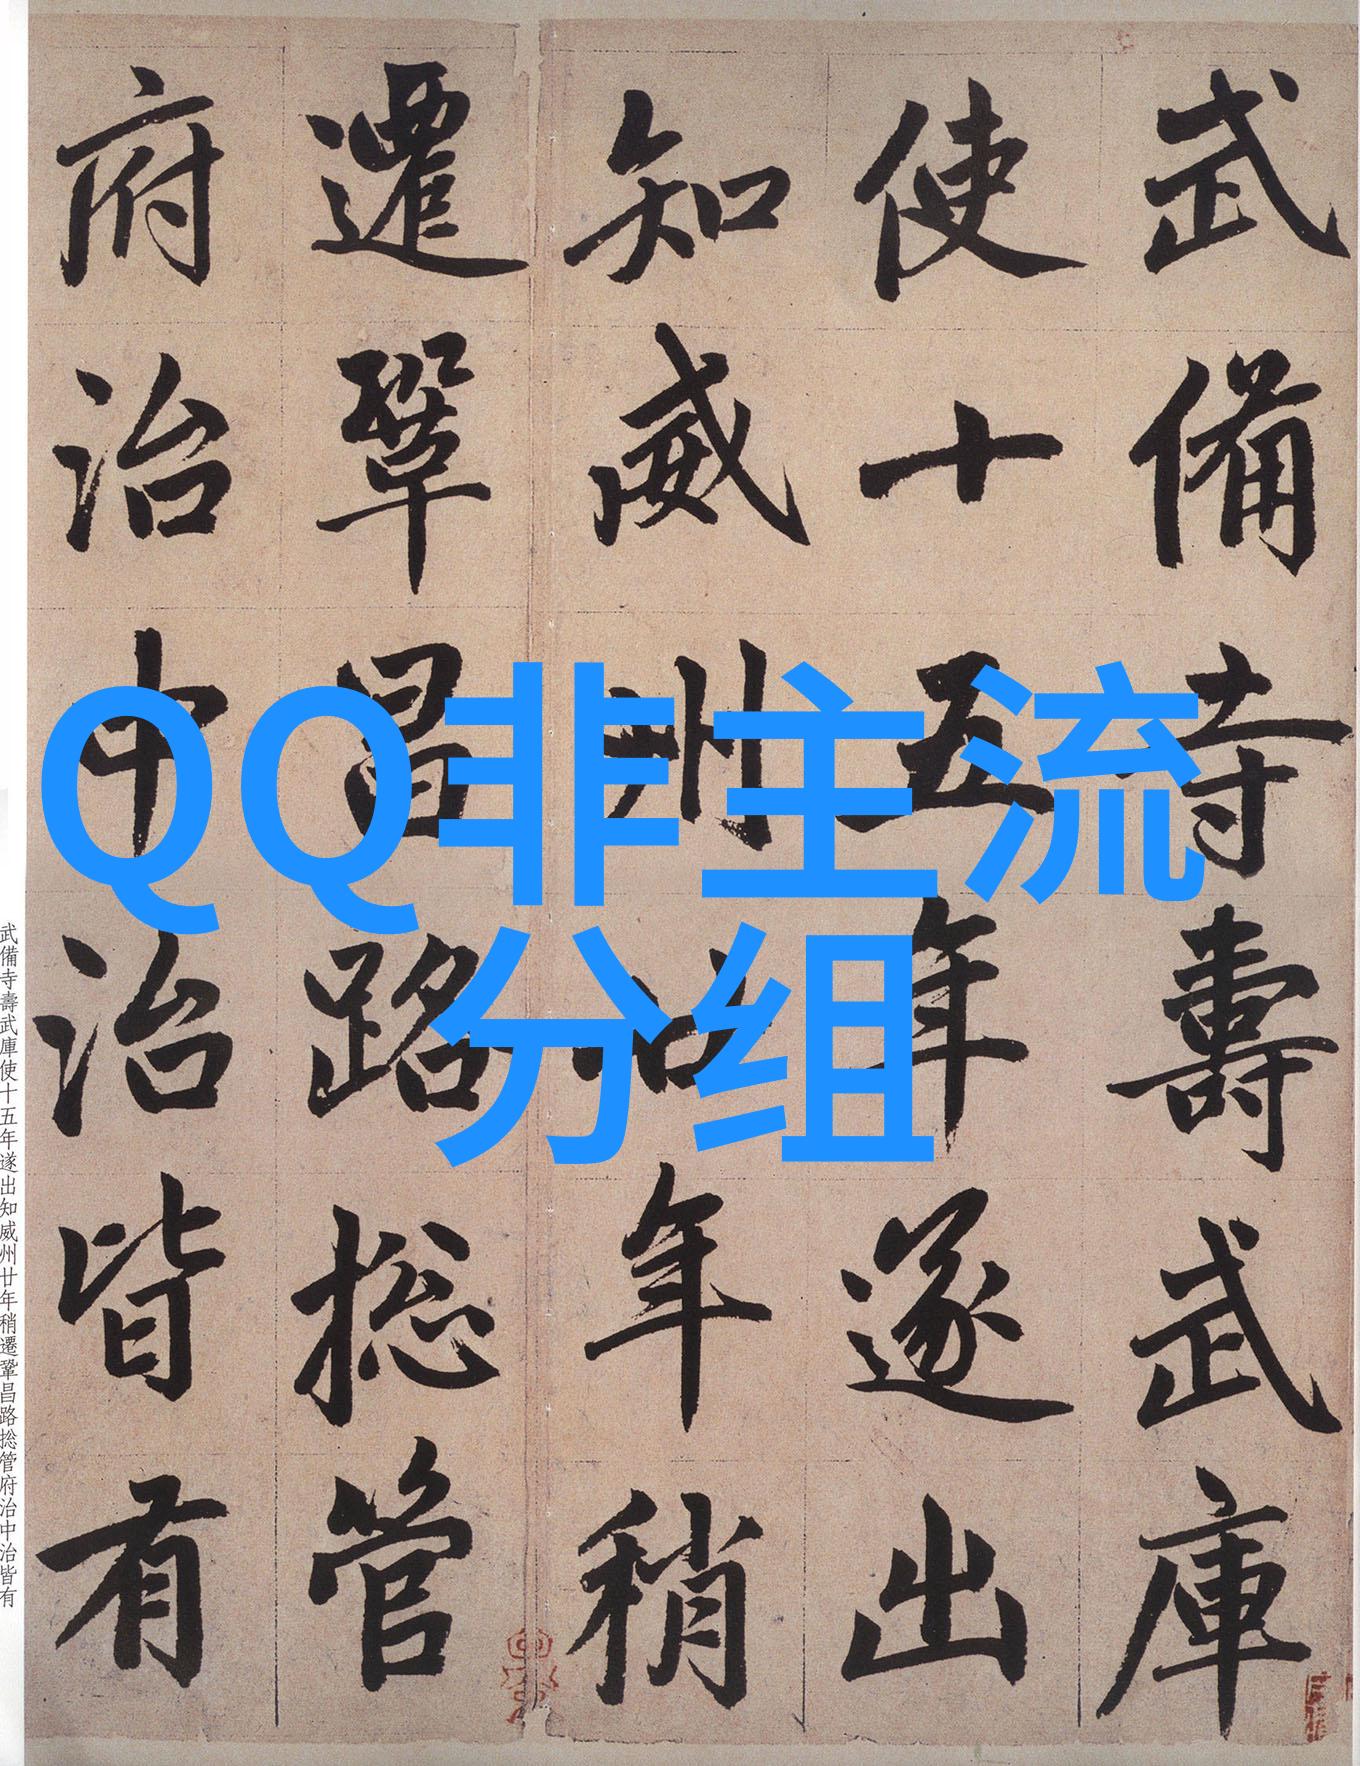 武備寺壽武庫
使十五年遂出
知威州廿年稍
遷鞏昌路捴管
府治中治皆有
QQ非主流
分组
武備寺壽武庫使十五年遂出知威州廿年稍遷鞏昌路捴管府治中治皆有